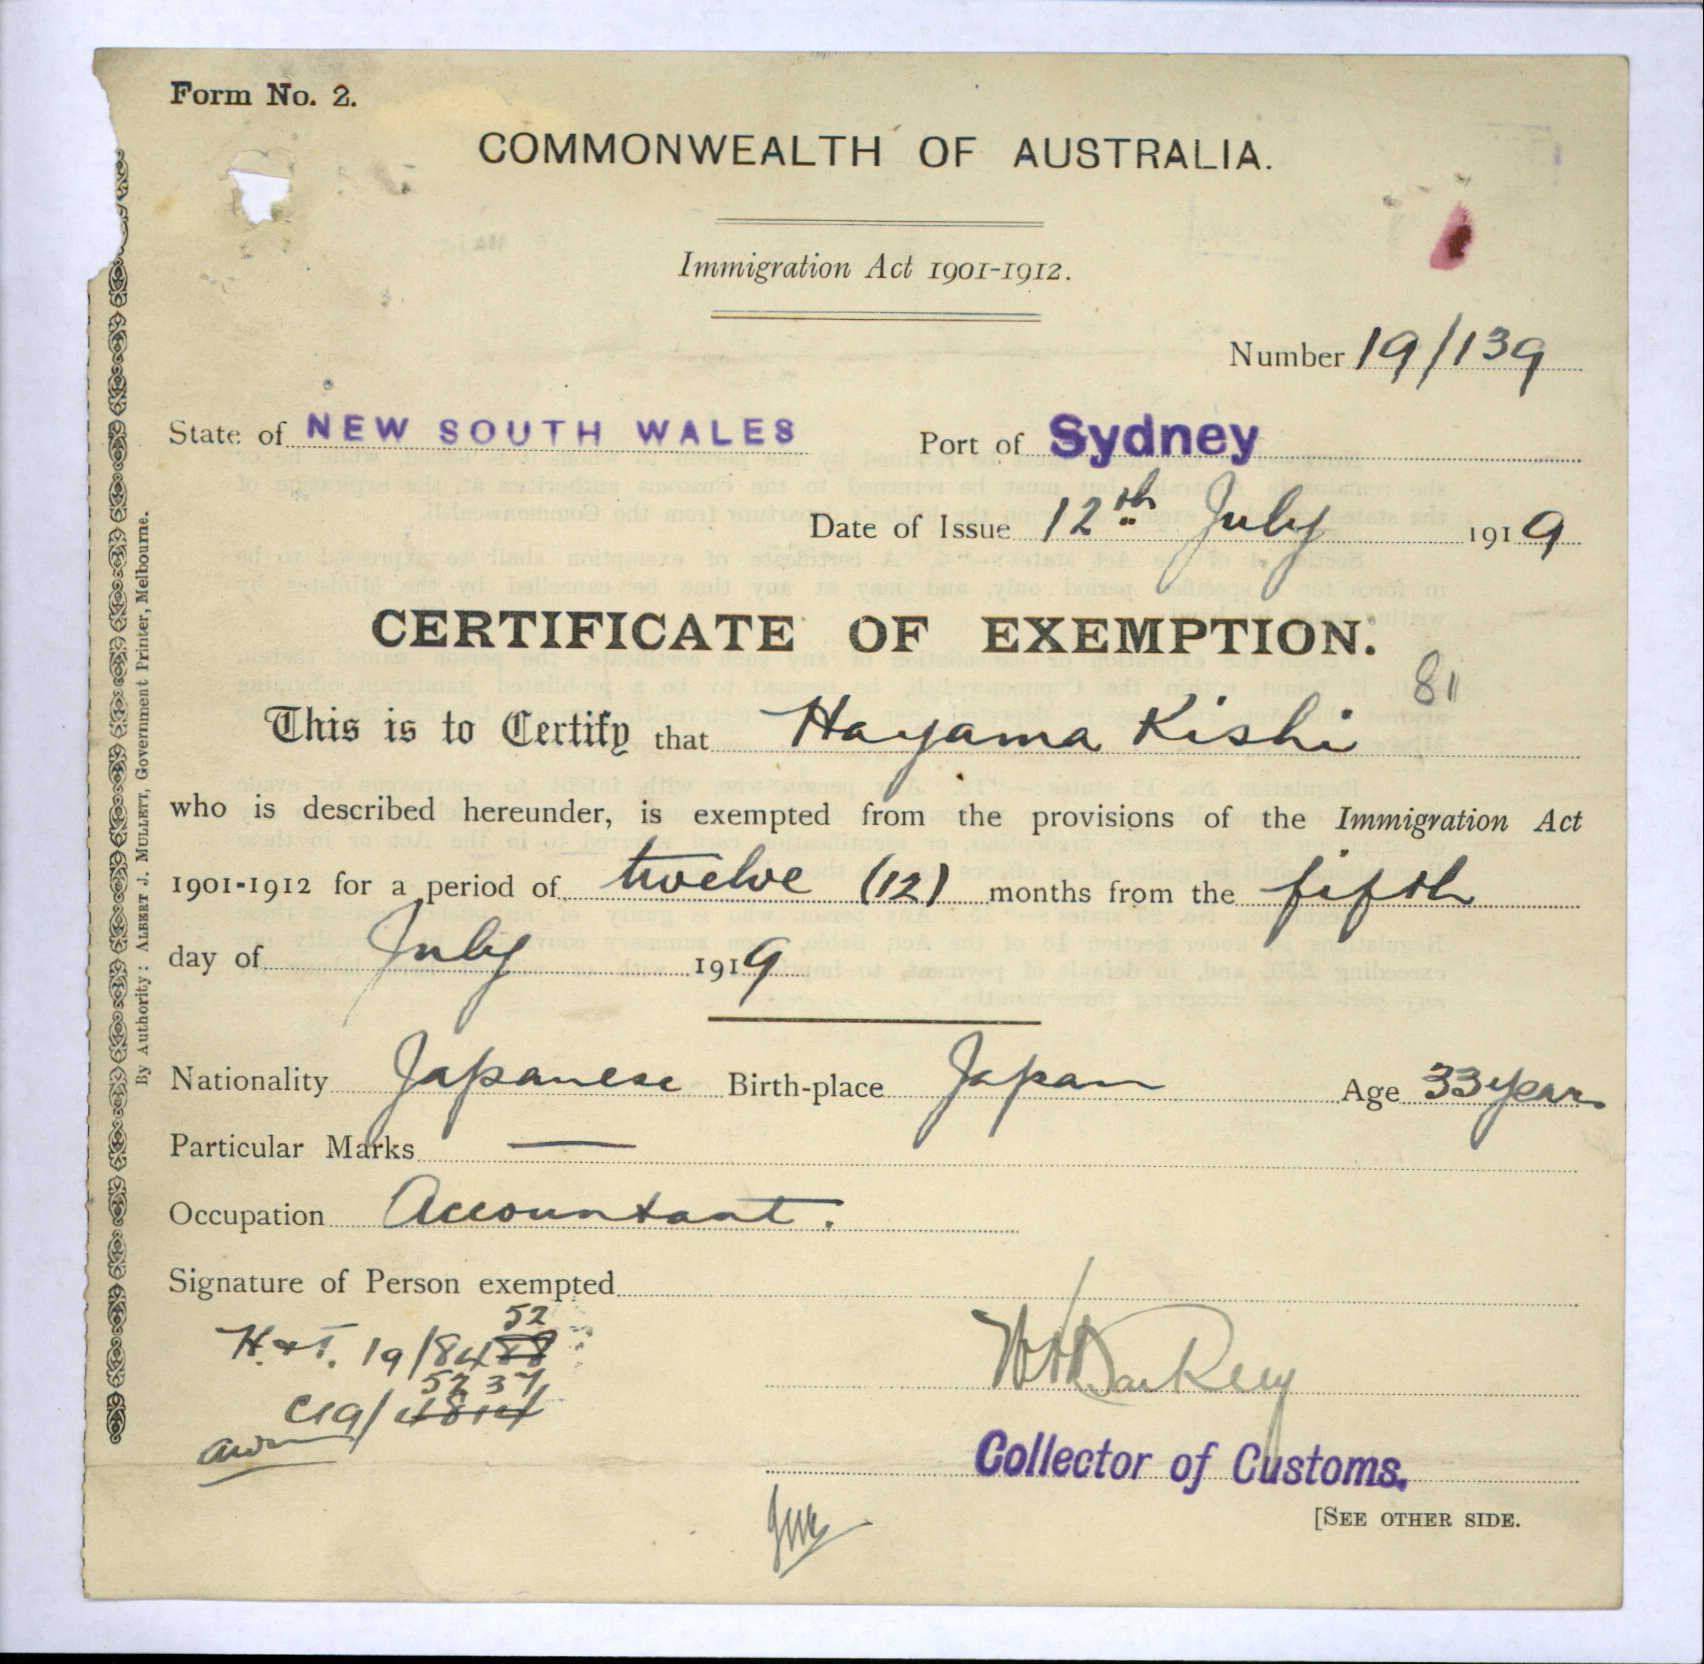 Form No. 2.
COMMONWEALTH OF AUSTRALIA.
Immigration Act 1901-1912.
Number 19/139
State of NEW SOUTH WALES Port of Sydney
Date of Issue 12th July 1919
CERTIFICATE OF EXEMPTION.
811
This is to Certify that Hayama Kishi
who is described hereunder, is exempted from the provisions of the Immigration Act
1901-1912 for a period of twelve (12) months from the fifth
day of July 1919
Nationality Japanese Birth-place Japan Age 33 years
Particular Marks —
Occupation Accountant.
Signature of Person exempted
52
H.&T. 19/8488
52 37
C19/4814
Collector of Customs.
[SEE OTHER SIDE.
By Authority: ALBERT J. MULLETT, Government Printer, Melbourne.